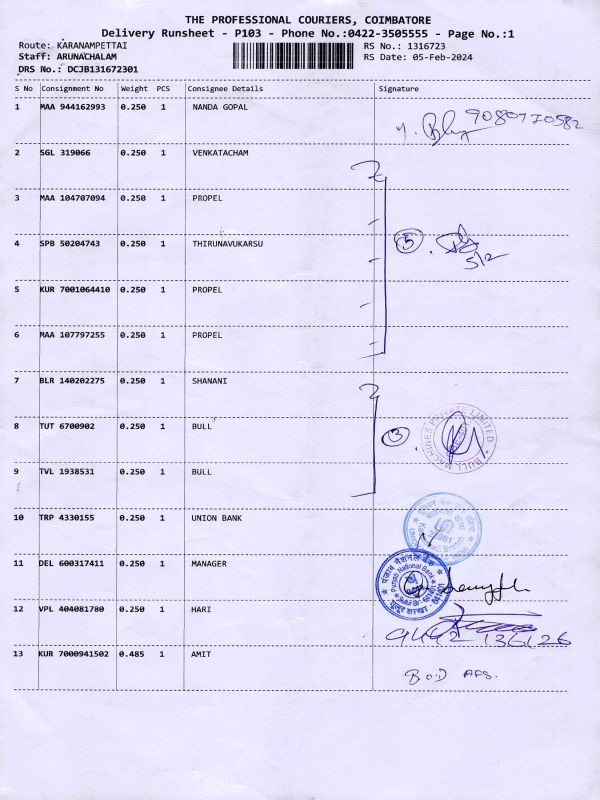 THE PROFESSIONAL COURIERS, COIMBATORE
Delivery Runsheet - P103 - Phone No.:0422-3505555 - Page No.:1
Route: KARANAMPETTAI RS No.: 1316723
Staff: ARUNACHALAM RS Date: 05-Feb-2024
DRS No.: DCJB131672301
S No Consignment No Weight PCS Consignee Details Signature
1 MAA 944162993 0.250 1 NANDA GOPAL 9080770582
2 SGL 319066 0.250 1 VENKATACHAM
3 MAA 104707094 0.250 1 PROPEL
4 SPB 50204743 0.250 1 THIRUNAVUKARSU 5
5/2
5 KUR 7001064410 0.250 1 PROPEL
6 MAA 107797255 0.250 1 PROPEL
7 BLR 140202275 0.250 1 SHANANI
8 TUT 6700902 0.250 1 BULL 3
BULL MACHINES PRIVATE LIMITED
9 TVL 1938531 0.250 1 BULL
10 TRP 4330155 0.250 1 UNION BANK
11 DEL 600317411 0.250 1 MANAGER
पंजाब नैशनल बैंक
Punjab National Bank
12 VPL 404081780 0.250 1 HARI
13 KUR 7000941502 0.485 1 AMIT